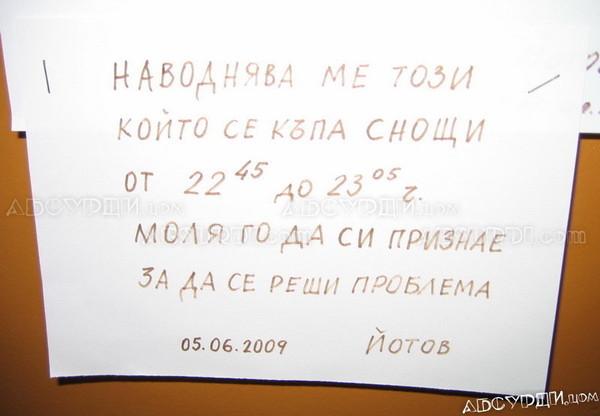 НАВОДНЯВА МЕ ТОЗИ
КОЙТО СЕ КЪПА СНОЩИ
ОТ 22 45 ДО 23 05 Ч.
МОЛЯ ГО ДА СИ ПРИЗНАЕ
ЗА ДА СЕ РЕШИ ПРОБЛЕМА
05.06.2009 ЙОТОВ
АБСУРДИ.com